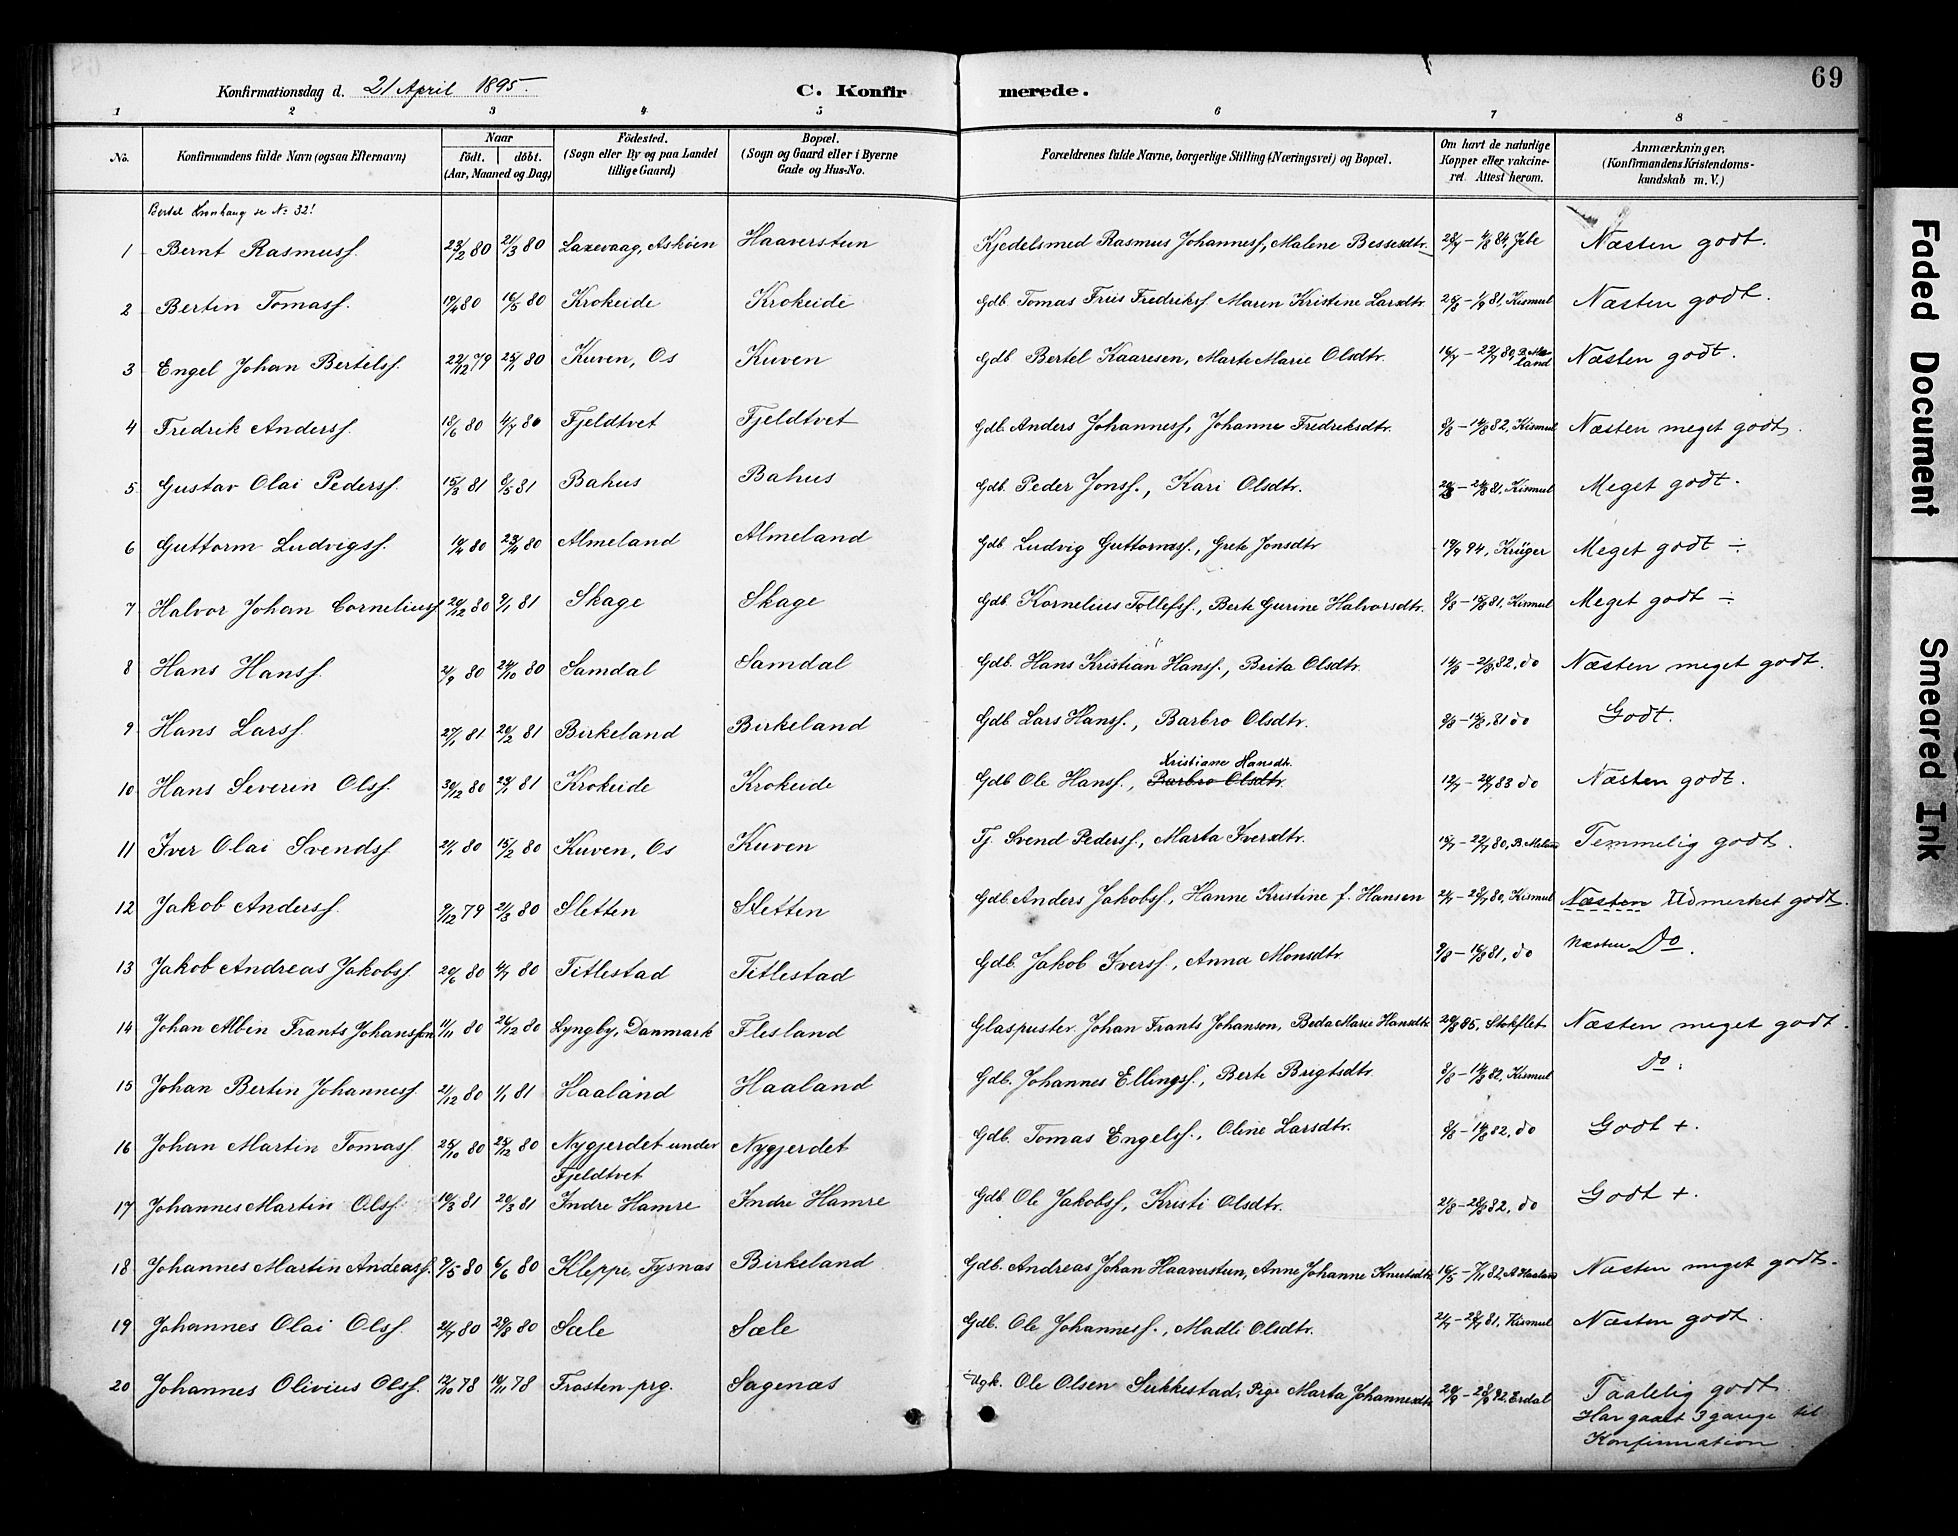 69
Konfirmationsdag d. 21 April 1895.
C. Konfirmerede.
1 2 3 4 5 6 7 8
No. Konfirmandens fulde Navn (ogsaa Efternavn) Naar født. døbt. (Aar, Maaned og Dag) Fødested. (Sogn eller By og paa Landet tillige Gaard) Bopæl. (Sogn og Gaard eller i Byerne Gade og Hus-No. Forældrenes fulde Navne, borgerlige Stilling (Næringsvei) og Bopæl. Om havt de naturlige Kopper eller vakcineret. Attest herom. Anmærkninger. (Konfirmandens Kristendomskundskab m. V.)
Bertel se No 32!
1 Bernt Rasmuss. 23/2 80 21/3 80 Laxevaag, Askøen Haaverstun Kjedelsmed Rasmus Johanness, Malene Bessesdtr. 84, Jebe Næsten godt.
2 Bertin Tomass. 19/4 80 16/5 80 Krokeide Krokeide Gdb Tomas Friis Fredrikss Maren Kristine Larsdtr. 81, Kismul Næsten godt.
3 Engel Johan Bertelss. 22/12 79 25/1 80 Kuven, Os Kuven Gdb Bertel Kaaresen, Marte Marie Olsdtr. 80, B. Meland Næsten godt.
4 Fredrik Anderss. 18/6 80 4/7 80 Fjeldtvet Fjeldtvet Gdb. Anders Johanness, Johanne Fredriksdtr. 9/8 - 14/8 82, Kismul Næsten meget godt.
5 Gustav Olai Pederss. 15/3 81 8/5 81 Bahus Bahus Gdb. Peder Jonss., Kari Olsdtr. 81, Kismul Meget godt.
6 Guttorm Ludvigss. 80 80 Almeland Almeland Gdb. Ludvig Guttormss., Grete Jonsdtr 94, Krüger Meget godt ÷
7 Halvor Johan Corneliuss 80 9/1 81 Skage Skage Gdb. Kornelius Tollefss., Berte Gurine Halvorsdtr. 81, Kismul Meget godt ÷
8 Hans Hanss. 80 24/10 80 Samdal Samdal Gdb. Hans Kristian Hanss., Brita Olsdtr. 82, do Næsten meget godt.
9 Hans Larss. 27/1 81 20/2 81 Birkeland Birkeland Gdb. Lars Hanss., Barbro Olsdtr. 81 do Godt.
10 Hans Severin Olss. 30/12 80 23/1 81 Krokeide Krokeide Gdb Ole Hanss., Barbro Olsdtr. Kristiane Hansdtr. 83 do Næsten godt.
11 Iver Olai Svendss. 80 15/2 80 Kuven, Os Kuven Tj. Svend Pederss., Marta Iversdtr. 80, B. Meland Temmelig godt.
12 Jakob Anderss. 9/12 79 21/3 80 Sletten Sletten Gdb. Anders Jakobss., Hanne Kristine f. Hansen 80, Kismul Næsten Udmerket godt.
13 Jakob Andreas Jakobss. 20/6 80 4/7 80 Titlestad Titlestad Gdb. Jakob Iverss., Anna Monsdtr. 81, do Næsten Do.
14 Johan Albin Frants Johanssen 11/11 80 26/12 80 Lyngby, Danmark Flesland Glaspuster Johan Frants Johanson, Beda Marie Hansdtr 85, Stokflet Næsten meget godt.
15 Johan Bertin Johanness. 2/12 80 1/1 81 Haaland Haaland Gdb. Johannes Ellingss., Berte Brigtsdtr. 9/8 - 14/8 82, Kismul Do.
16 Johan Martin Tomass. 25/10 80 80 Nygjerdet under Fjeldtvet Nygjerdet Gdb. Tomas Engelss., Oline Larsdtr. 9/8 - 14/8 82, do Godt +.
17 Johannes Martin Olss. 10/3 81 20/3 81 Indre Hamre Indre Hamre Gdb. Ole Jakobss., Kristi Olsdtr. 82, do Godt +.
18 Johannes Martin Andreass. 9/5 80 6/6 80 Kleppe, Tysnæs Birkeland Gdb. Andreas Johan Haaverstun, Anne Johanne Knutsdtr 82, A Haaland Næsten meget godt.
19 Johannes Olai Olss. 80 29/8 80 Sæle Sæle Gdb. Ole Johanness., Madli Olsdtr. 81, Kismul Næsten godt.
20 Johannes Olivius Olss. 12/10 78 78 Frosten prg. Sagenæs Ugk. Ole Olsen Sukkestad, Pige Marta Johannesdtr 92, Erdal Taalelig godt. Har gaaet 3 gange til Konfirmation.
Faded Document
Smeared Ink